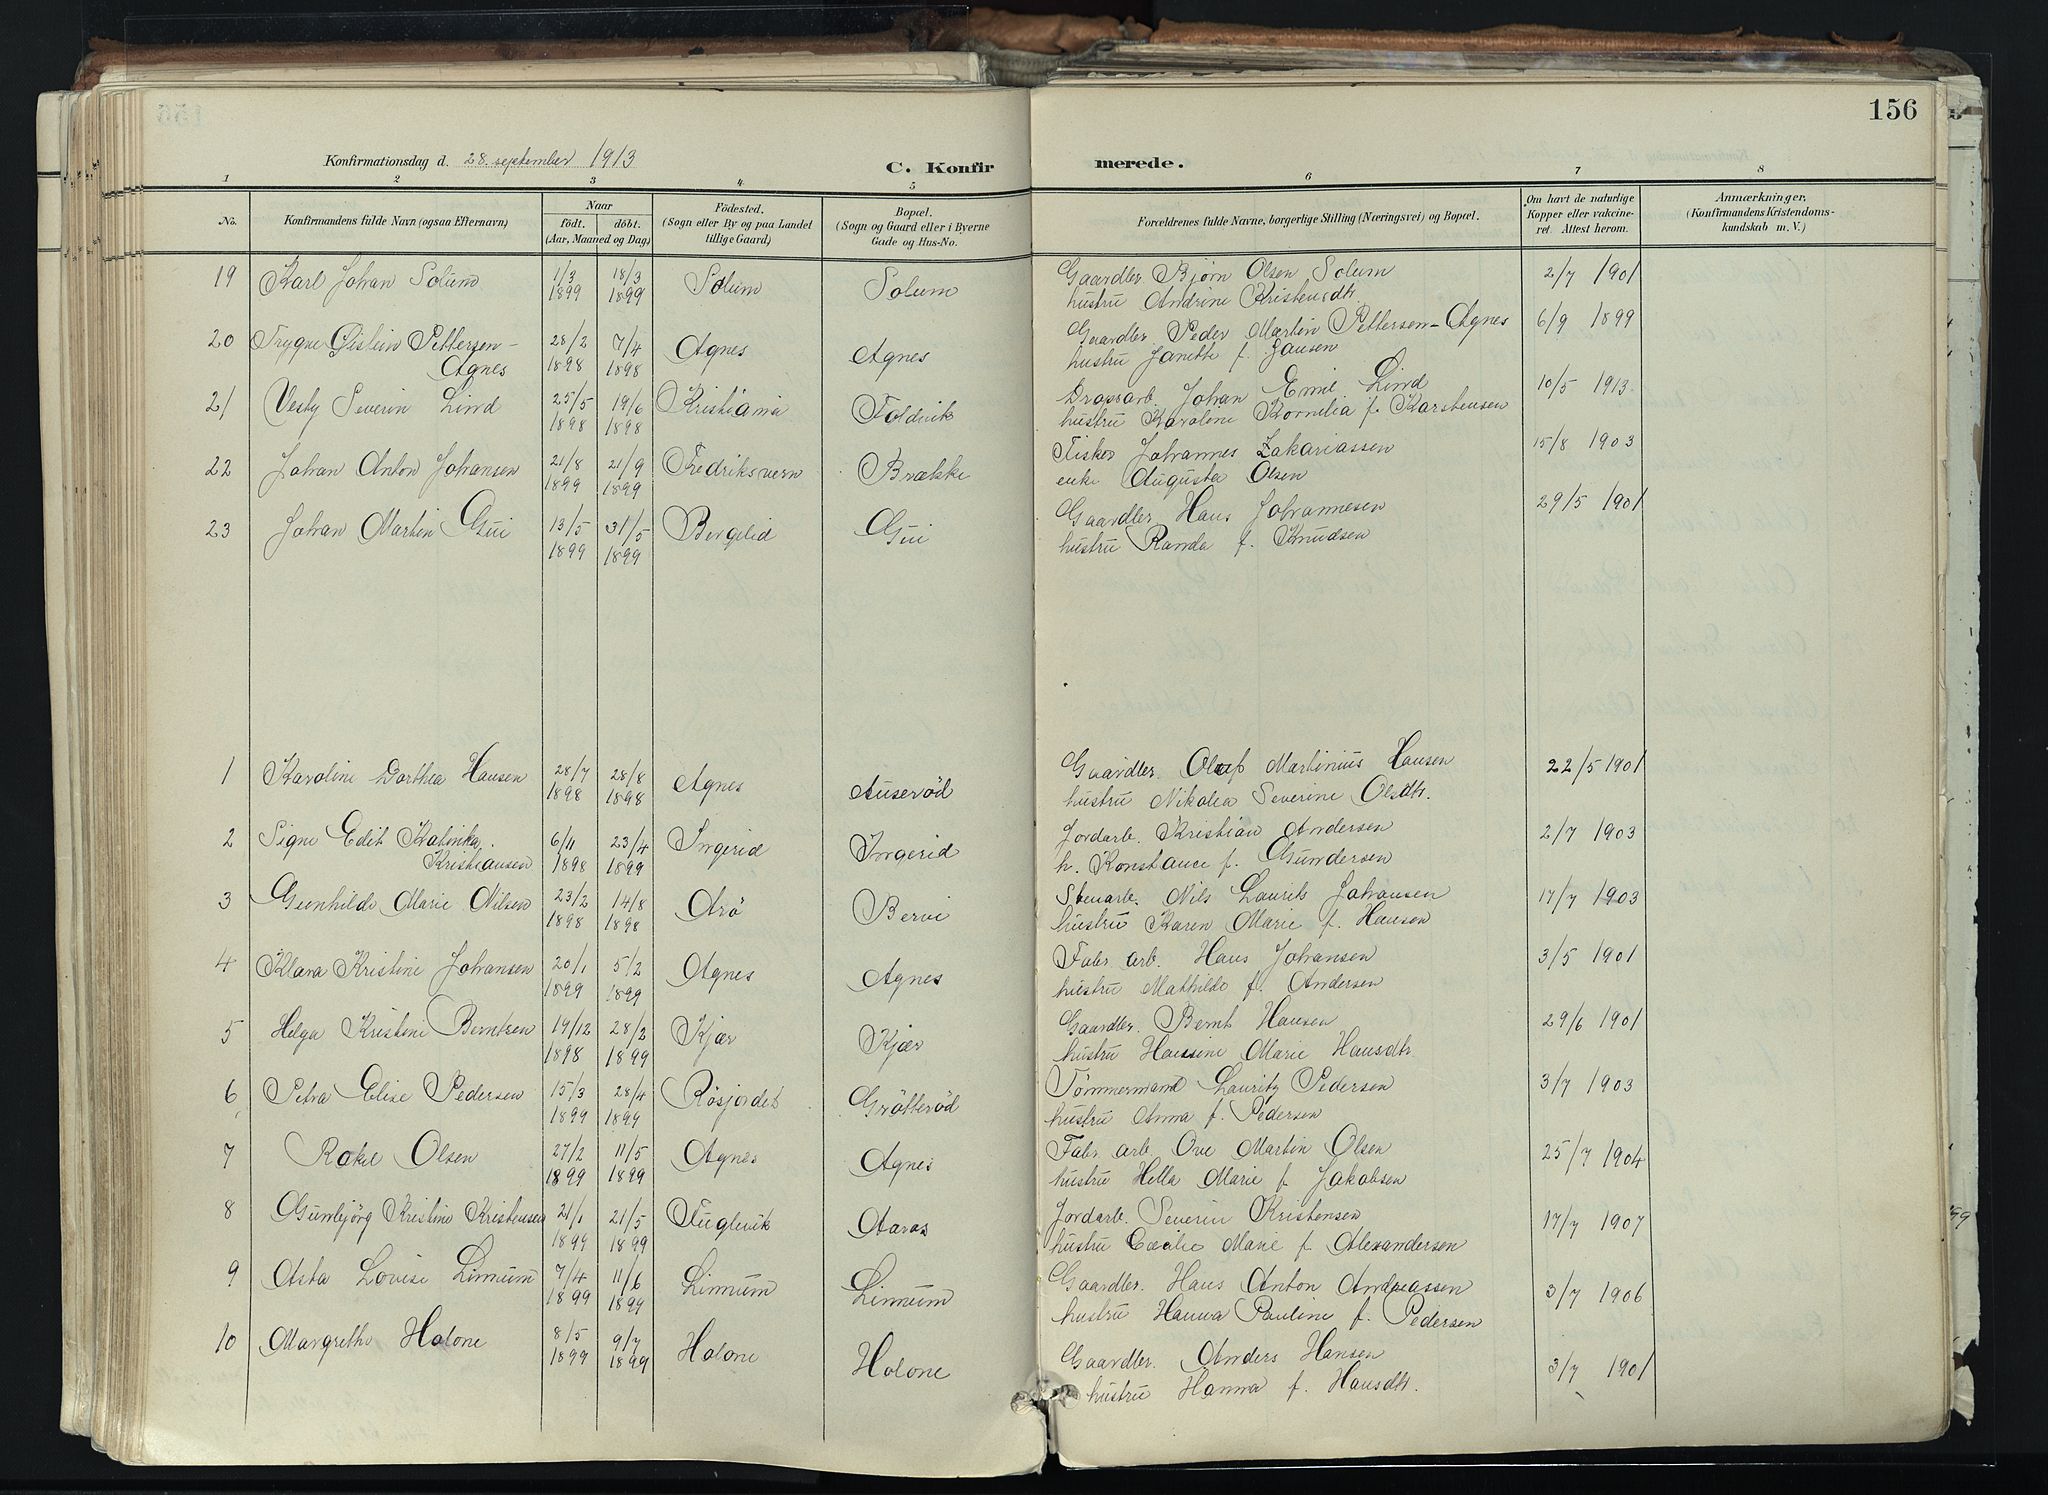 156
Konfirmationsdag d. 28. september 1913
C. Konfir
merede.
1 2 3 4 5 6 7 8
No.
Konfirmandens fulde Navn (ogsaa Efternavn)
Naar
født. døbt.
(Aar, Maaned og Dag)
Fødested.
(Sogn eller By og paa Landet
tillige Gaard)
Bopæl.
(Sogn og Gaard eller i Byerne
Gade og Hus-No.
Forældrenes fulde Navne, borgerlige Stilling (Næringsvei) og Bopæl.
Om havt de naturlige
Kopper eller vakcine-
ret. Attest herom.
Anmærkninger.
(Konfirmandens Kristendoms-
kundskab m. V.)
19 Karl Johan Solum 1/3 1899 18/3 1899 Solum Solum Gaardbr. Bjørn Olsen Solum 2/7 1901
hustru Andrine Kristensdtr.
20 Trygve Øistein Pettersen- 28/2 1898 7/4 1898 Agnes Agnes Gaardbr. Peder Martin Pettersen-Agnes 6/9 1899
Agnes hustru Janette f. Jansen
21 Vesty Severin Lind 25/5 1898 19/6 1898 Kristiania Foldvik Johan Emil Lind 10/5 1913
hustru Karoline Kornelia f. Karstensen
22 Johan Anton Johansen 21/8 1899 21/9 1899 Fredriksvern Brække Fisker Johannes Zakariassen 15/8 1903
enke Augusta Olsen
23 Johan Martin Gui 13/5 1899 31/5 1899 Bergelid Gui Gaardbr. Hans Johannesen 29/5 1901
hustru Randa f. Knudsen
1 Karoline Dorthea Hansen 28/7 1898 28/8 1898 Agnes Auserød Gaardbr. Oluf Martinius Hansen 22/5 1901
hustru Nikolea Severine Olsdtr.
2 Signe Edit Katinka 6/11 1898 23/4 1899 Ingerid Ingerid Jordarb. Kristian Andersen 2/7 1903
Kristiansen h. Konstance f. Gundersen
3 Gunhilde Marie Nilsen 23/2 1898 14/8 1898 Arø Bervi Stenarb. Nils Laurits Johansen 17/7 1903
hustru Karen Marie f. Hansen
4 Klara Kristine Johansen 20/1 1899 5/2 1899 Agnes Agnes Fabr. arb. Hans Johansen 3/5 1901
hustru Mathilde f. Andersen
5 Helga Kristine Berntsen 19/12 1898 28/2 1899 Kjær Kjær Gaardbr. Bernt Hansen 29/6 1901
hustru Hansine Marie Hansdtr.
6 Petra Elise Pedersen 15/3 1899 28/4 1899 Røsjordet Grøtterød Tømmermand Lauritz Pedersen 3/7 1903
hustru Anna f. Pedersen
7 Rakel Olsen 27/2 1899 11/5 1899 Agnes Agnes Fabr. arb. Ove Martin Olsen 25/7 1904
hustru Hella Marie f. Jakobsen
8 Gunbjørg Kristine Kristensen 21/1 1899 21/5 1899 Fuglevik Aaros Jordarb. Severin Kristensen 17/7 1907
hustru Cecilie Marie f. Alexandersen
9 Asta Lovise Linnum 7/4 1899 11/6 1899 Linnum Linnum Gaardbr. Hans Anton Andreassen 3/7 1906
hustru Hanna Pauline f. Pedersen
10 Margrethe Holone 8/5 1899 9/7 1899 Holone Holone Gaardbr. Anders Hansen 3/7 1901
hustru Hanna f. Hansdtr.